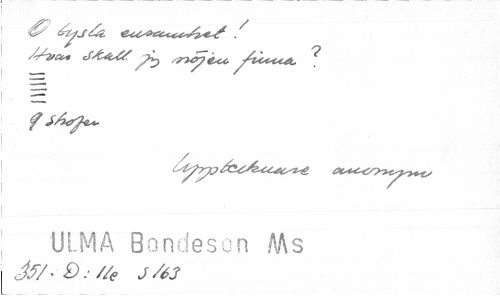 O tysta ensamhet!
Hvar skall jg nöjen finna?
9 strofer
Upptecknare anonym
ULMA Bondeson Ms
351. D: 11e s 163